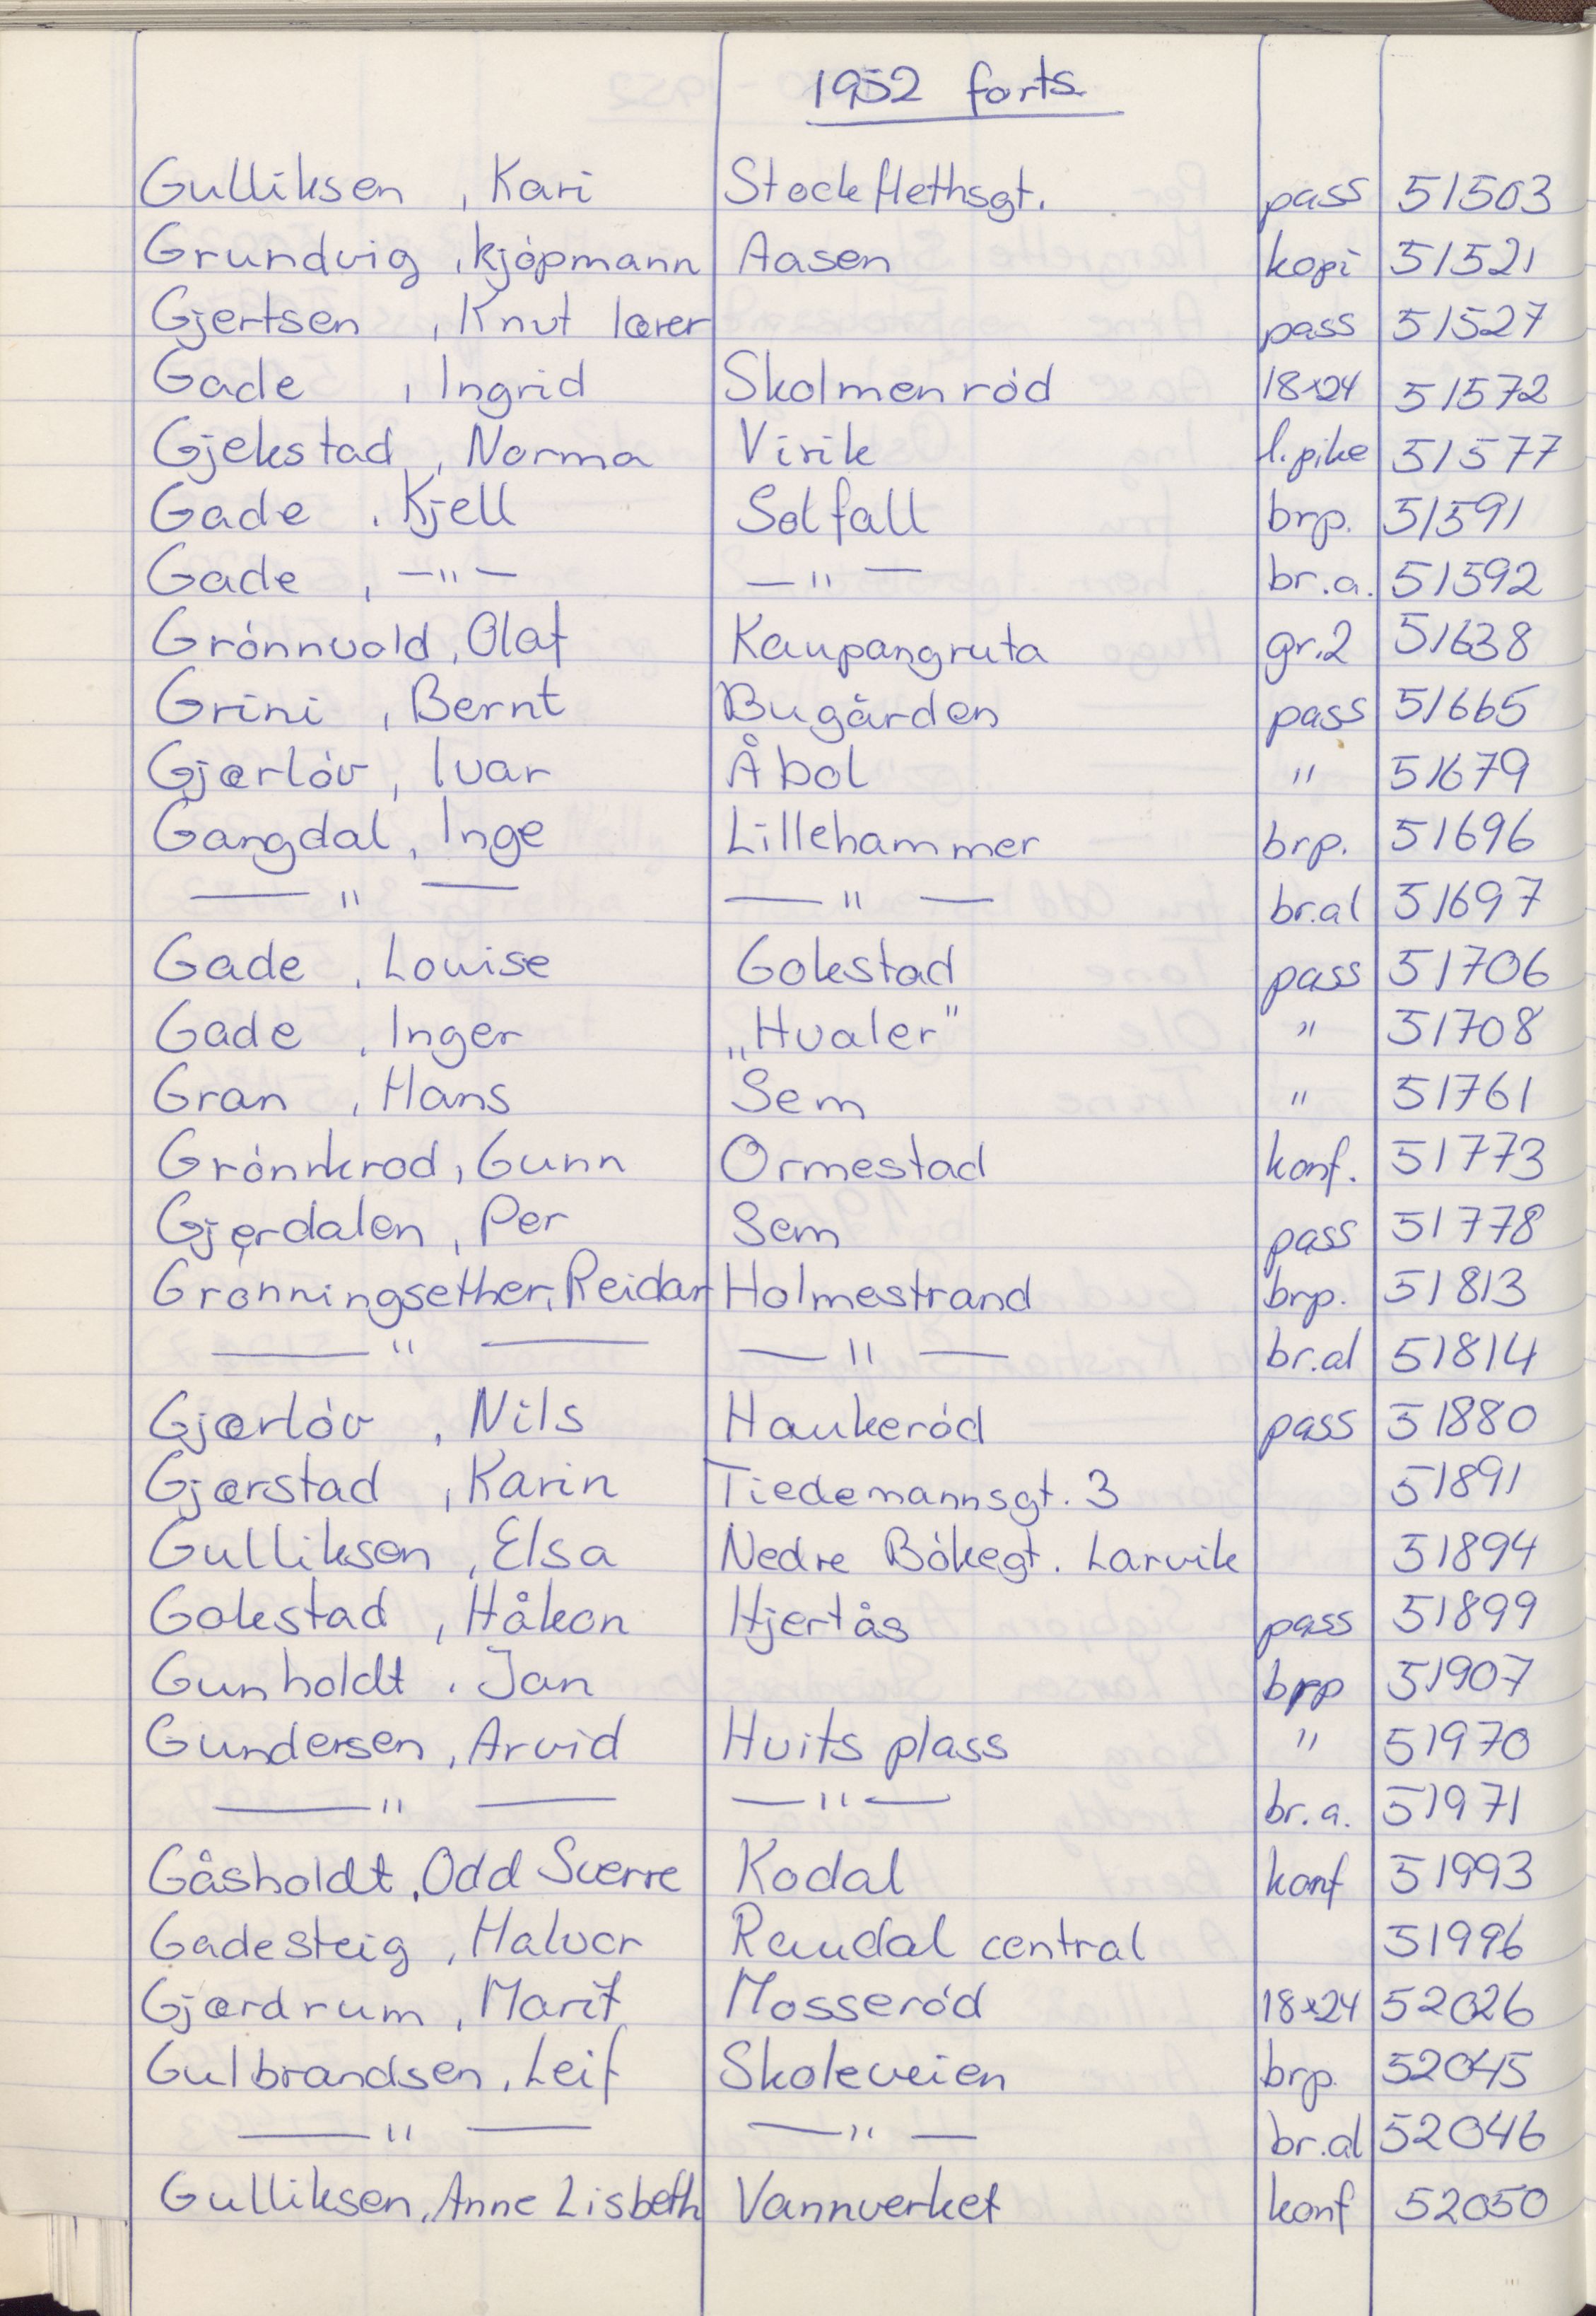 1952 forts
Gulliksen, Kari Stockflethsgt. pass 51503
Grundvig, kjøpmann Aasen kopi 51521
Gjertsen, Knut lærer pass 51527
Gade, Ingrid Skolmenrød 18x24 51572
Gjekstad, Norma Virik l.pike 51577
Gade, Kjell Solfall brp. 51591
Gade, —"— —"— br.a. 51592
Grønnvold, Olaf Kaupangruta gr.2 51638
Grini, Bernt Bugården pass 51665
Gjærløv, Ivar Åbol " 51679
Gangdal, Inge Lillehammer brp. 51696
—"— —"— br.al 51697
Gade, Louise Gokstad pass 51706
Gade, Inger „Hvaler" " 51708
Gran, Hans Sem " 51761
Grønnkrod, Gunn Ormestad konf. 51773
Gjerdalen, Per Sem pass 51778
Grønningsether, Reidar Holmestrand brp. 51813
—"— —"— br.al 51814
Gjærløv, Nils Haukerød pass 51880
Gjærstad, Karin Tiedemannsgt. 3 51891
Gulliksen, Elsa Nedre Bøkegt. Larvik 51894
Gokstad, Håkon Hjertås pass 51899
Gunholdt, Jan brp 51907
Gundersen, Arvid Hvits plass " 51970
—"— —"— br.a. 51971
Gåsholdt, Odd Sverre Kodal konf 51993
Gadesteig, Halvor Raudal central 51996
Gjærdrum, Marit Mosserød 18x24 52026
Gulbrandsen, Leif Skoleveien brp. 52045
—"— —"— br.al 52046
Gulliksen, Anne Lisbeth Vannverket konf 52050